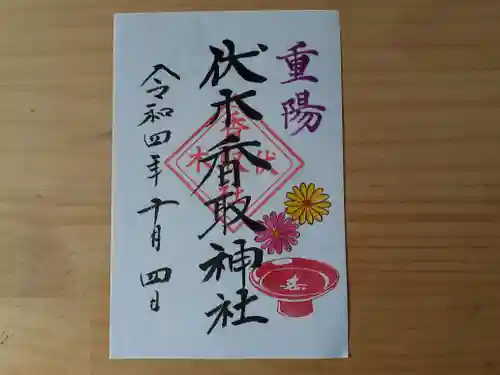 重陽
伏木香取神社
令和四年十月四日